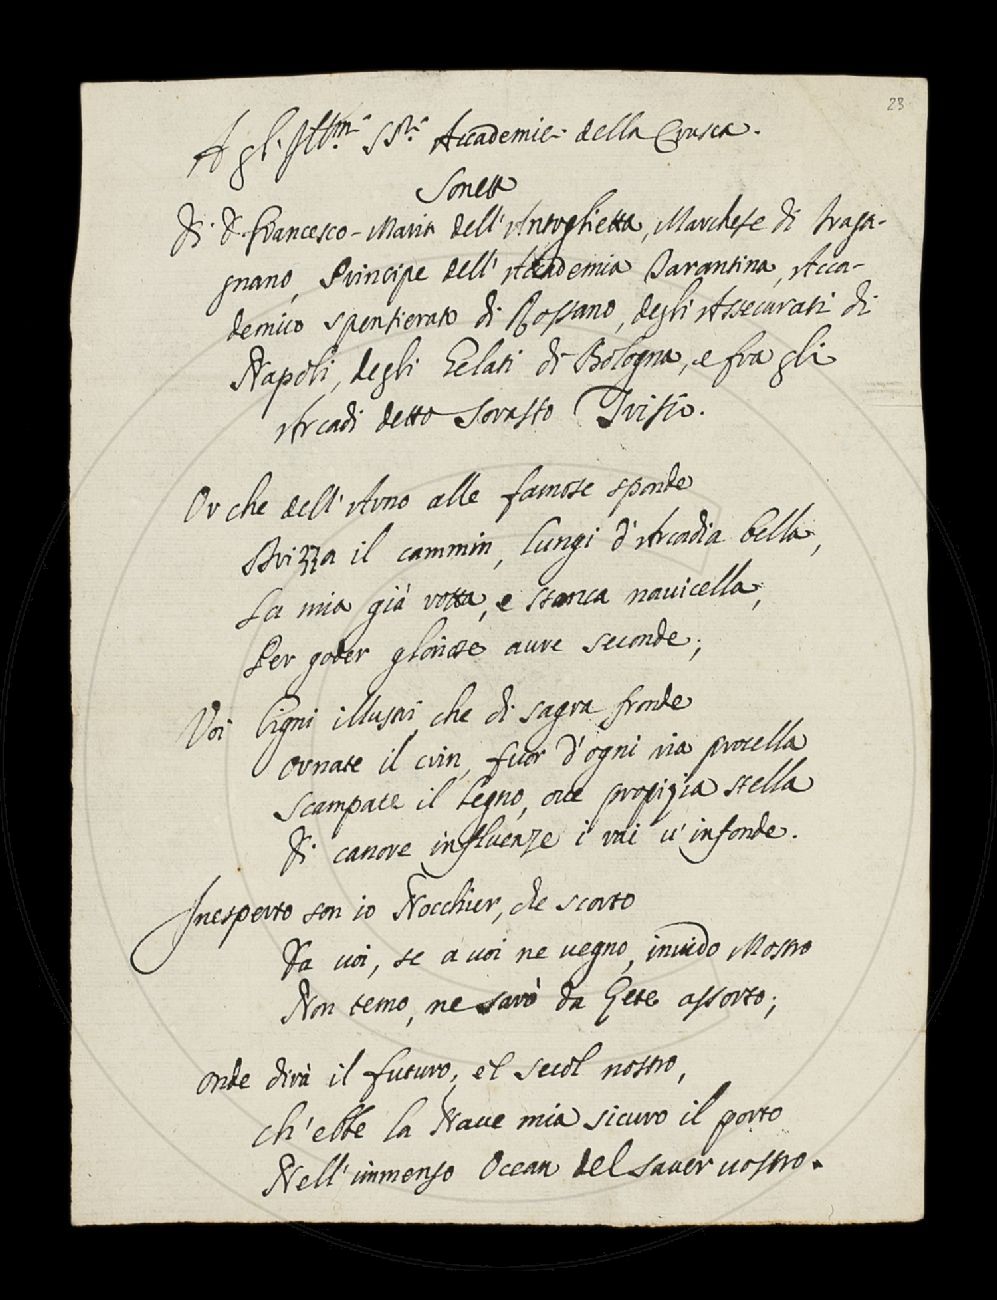 23
A gl' Ill.mi SS.ri Accademici della Crusca.
Sonetto
Di D. Francesco-Maria dell'Antoglietta, Marchese di Fraga-
gnano, Principe dell'Accademia Tarantina, Acca-
demico spensierato di Rossano, degli Assicurati di
Napoli, degli Gelati di Bologna, e fra gli
Arcadi detto Sorasto Trisio.
Or che dell'Arno alle famose sponde
Drizza il cammin, lungi d'Arcadia bella,
La mia già rotta, e stanca navicella,
Per goder gloriose aure seconde;
Voi Cigni illustri che di sagra fronde
Ornate il crin, fuor d'ogni ria procella
Scampate il Legno, ove propizia stella
Di canore influenze i rai v'infonde.
Inesperto son io Nocchier, che scorto
Da voi, se a voi ne vegno, invido Mostro
Non temo, ne sarò da Gete assorto;
Onde dirà il futuro, el secol nostro,
Ch'ebbe la Nave mia sicuro il porto
Nell'immenso Ocean del saver vostro.